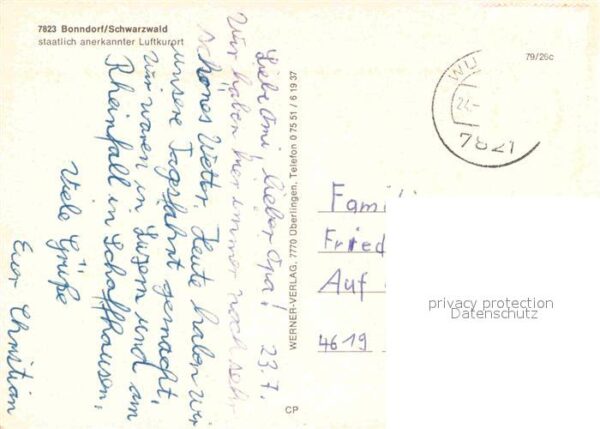 7823 Bonndorf/Schwarzwald
staatlich anerkannter Luftkurort
79/26c
7821
Liebe Omi, lieber Opa! 23.7.
Wir haben hier immer noch sehr
schönes Wetter. Heute haben wir
unsere Tagesfahrt gemacht,
wir waren in Luzern und am
Rheinfall in Schaffhausen.
Viele Grüße
Euer Christian
WERNER-VERLAG, 7770 Überlingen, Telefon 0 75 51 / 6 19 37
Famili
Fried
Auf
4619
privacy protection
Datenschutz
CP